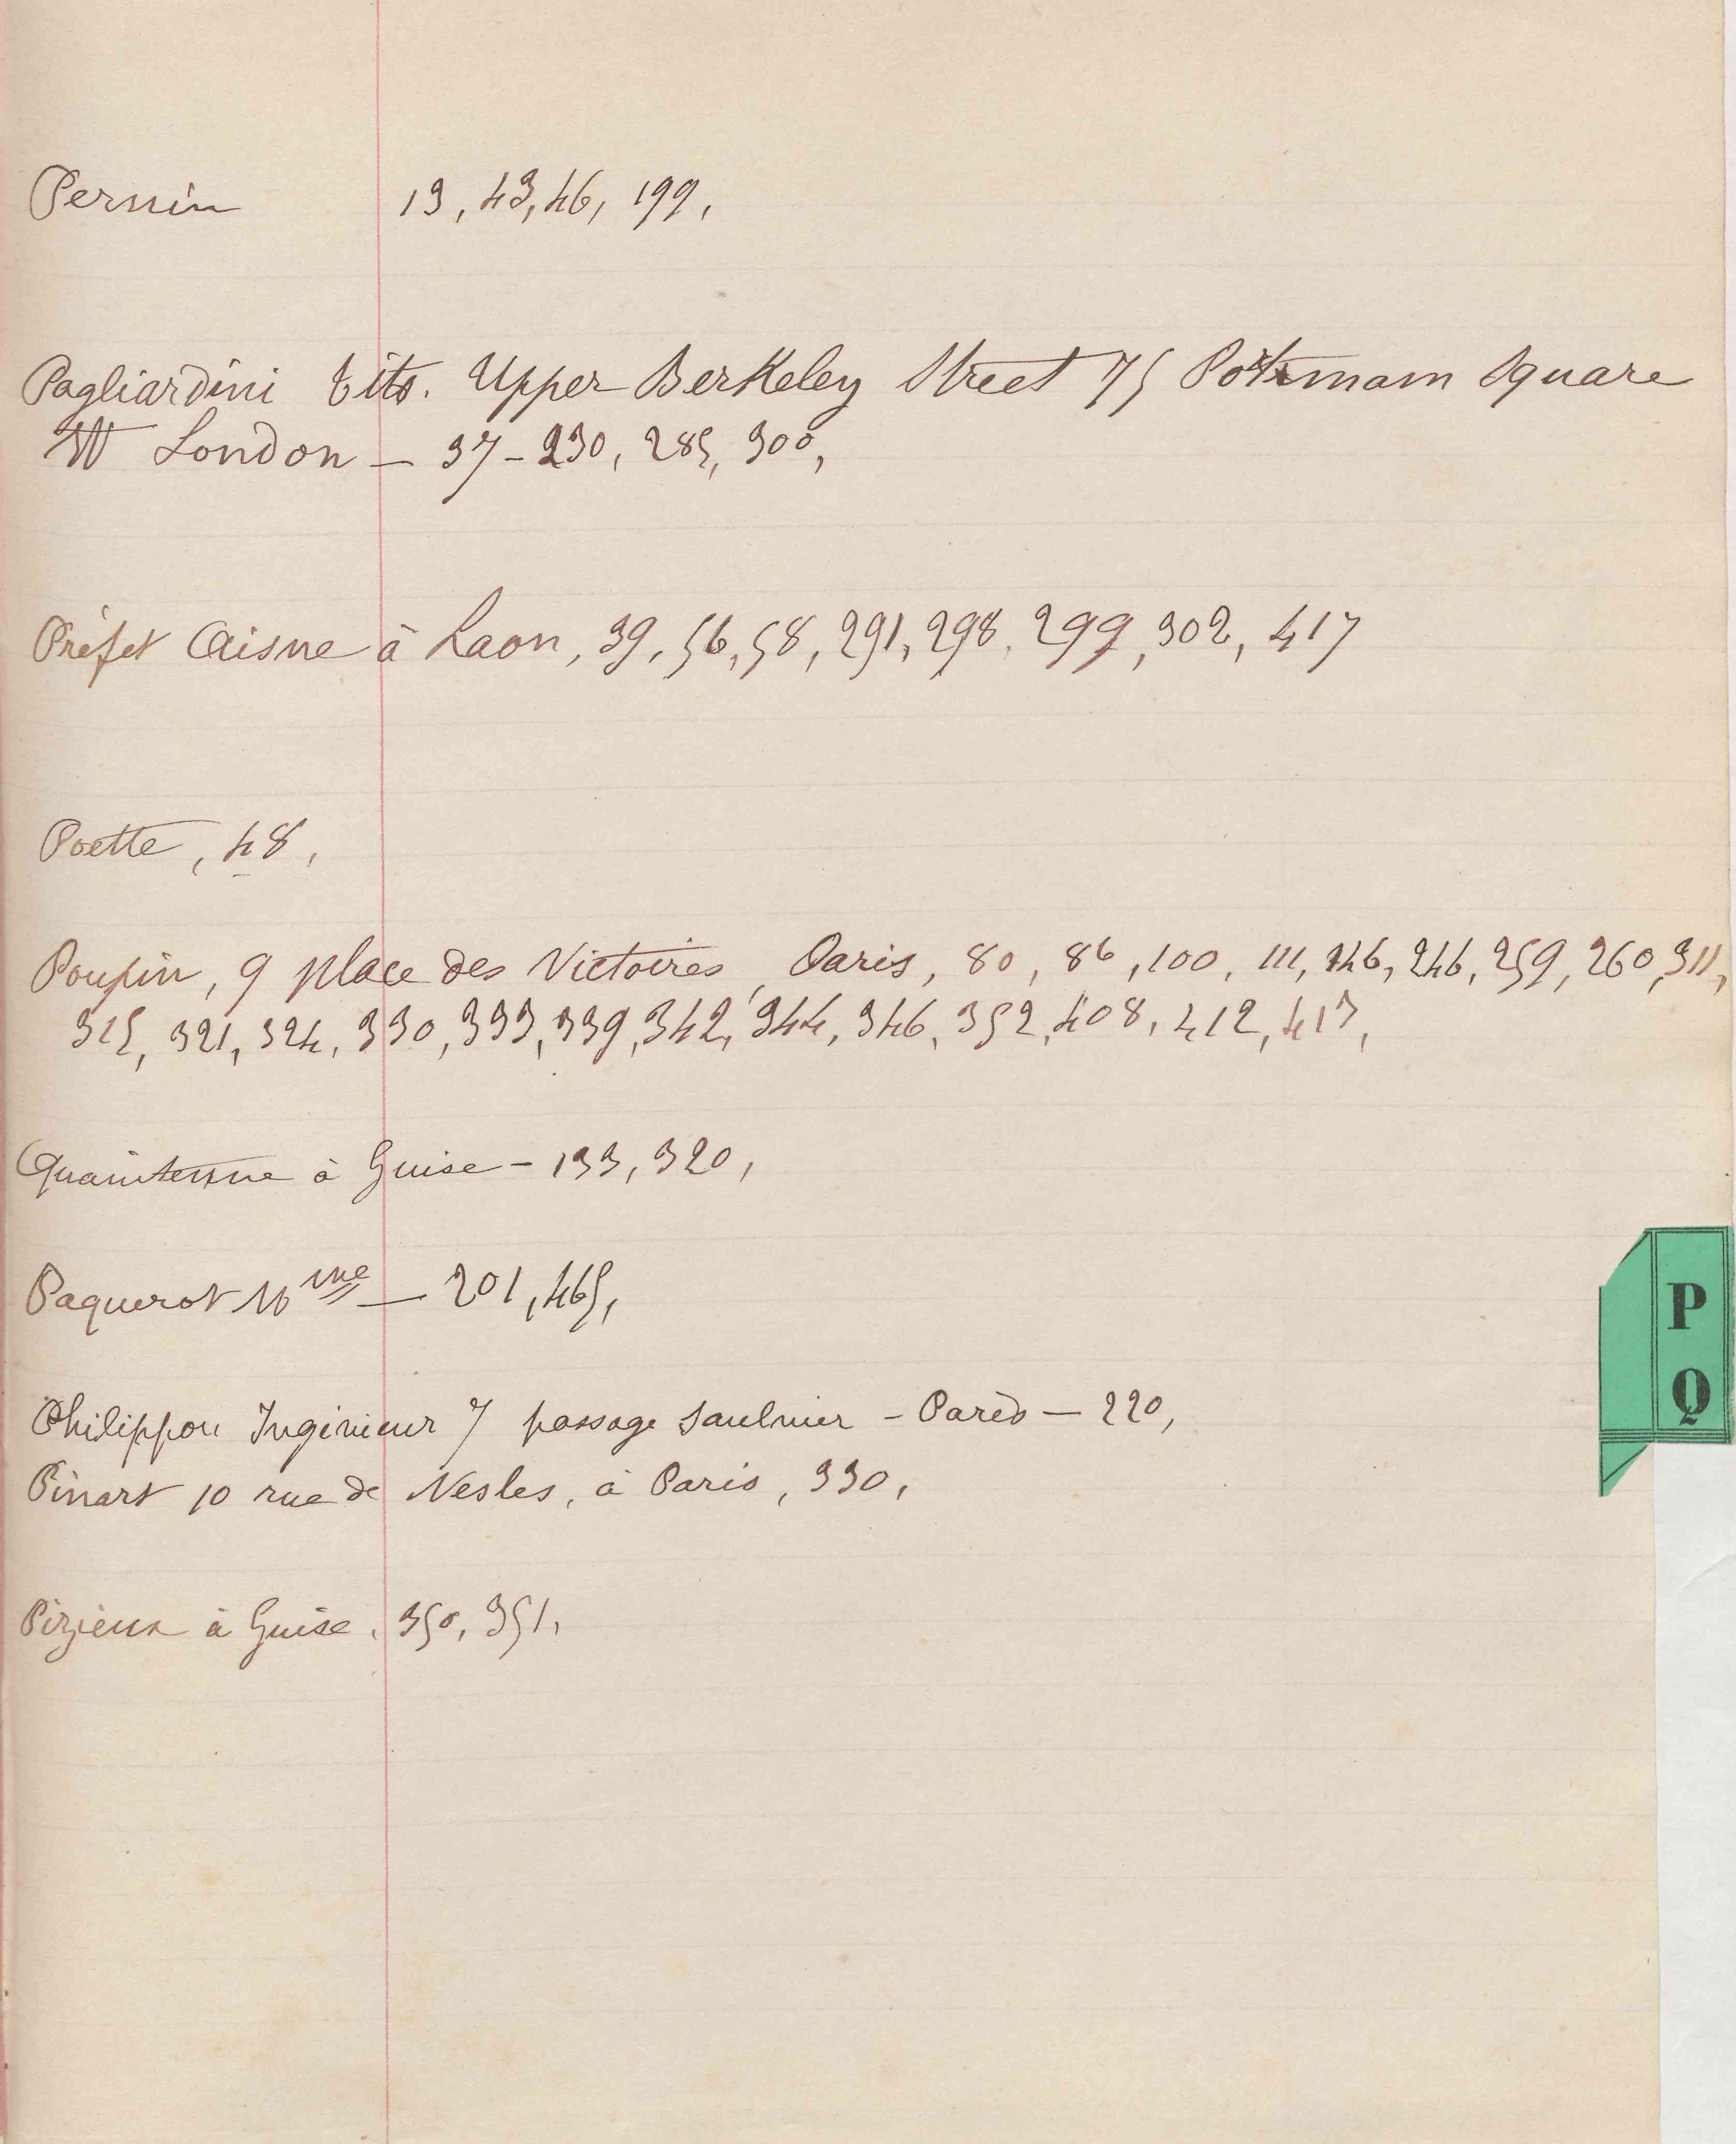 Pernin 13, 43, 46, 199,
Pagliardini tito. Upper Berkeley Street 75 Portmam Square
W London – 37 – 230, 285, 300,
Préfet Aisne à Laon, 39, 56, 58, 291, 298, 299, 302, 417
Poette, 48,
Poupin, 9 place des Victoires, Paris, 80, 86, 100, 111, 146, 246, 259, 260, 311,
315, 321, 324, 330, 333, 339, 342, 344, 346, 352, 408, 412, 413,
Quaintenne à Guise – 133, 320,
Paquerot Mme – 201, 465,
P
Q
Philippon Ingénieur 7 passage Saulnier – Paris – 220,
Pinart 10 rue de Nesles, à Paris, 330,
Pizieux à Guise, 350, 351,